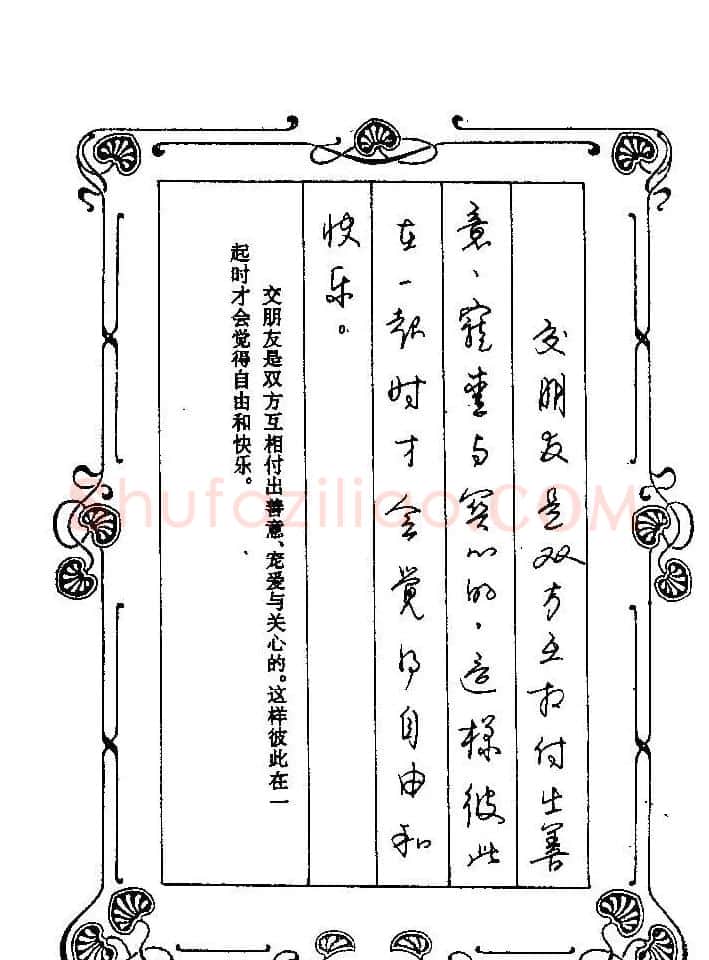 交朋友是双方互相付出善
意、寵愛与関心的，這樣彼此
在一起时才会覺得自由和
快乐。
交朋友是双方互相付出善意、宠爱与关心的。这样彼此在一
起时才会觉得自由和快乐。
Shufaziliao.COM